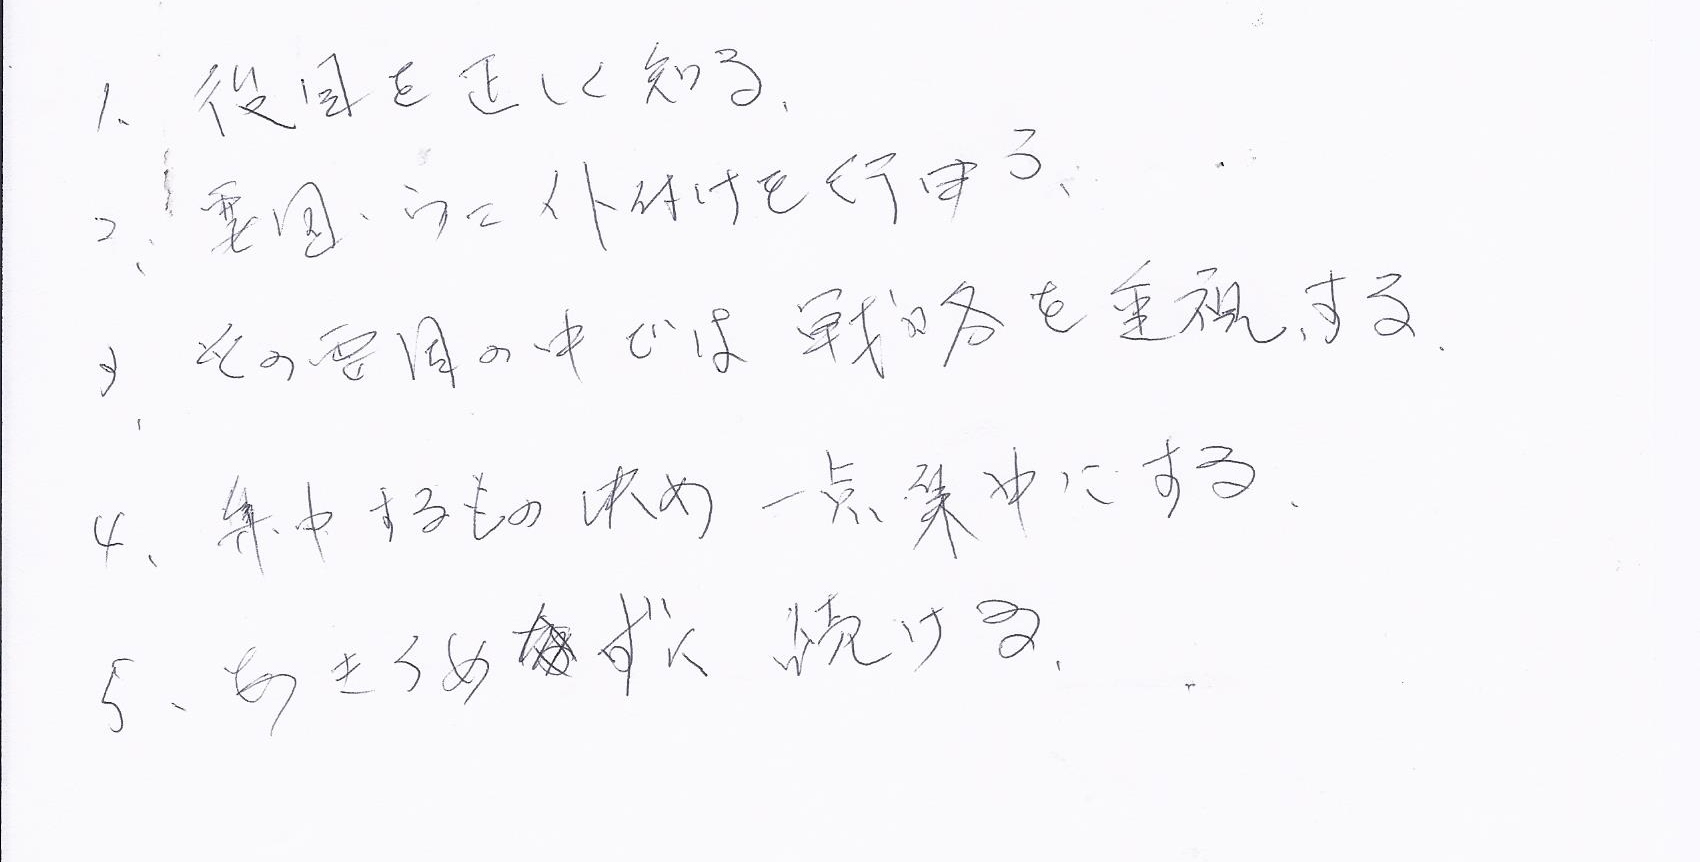 1、役目を正しく知る、
2、要因、
3、その要因の中では戦略を重視する、
4、集中するもの決め一点集中にする、
5、あきらめずに続ける、